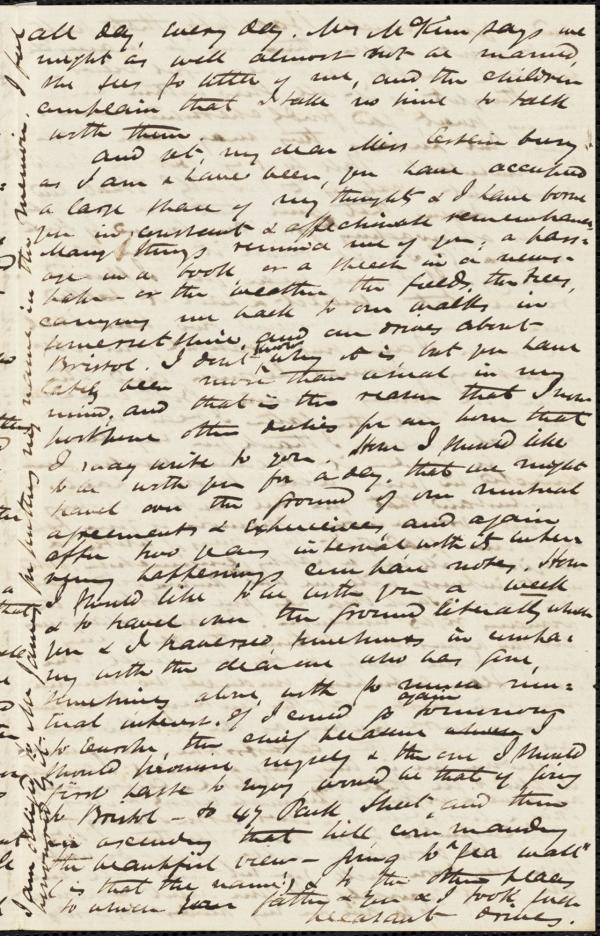 all day, every day. Mrs McKim says we
might as well almost not be married,
she sees so little of me, and the children
complain that I take no time to talk
with them.
And yet, my dear Miss Estlin busy
as I am & have been, you have occupied
a large share of my thoughts & I have borne
you in constant & affectionate remembrance.
Many things remind me of you; a pass=
age in a book or a speech in a news=
paper – or the weather the fields, the trees,
carrying me back to our walks in
Somersetshire, and our drives about
Bristol. I don't know why it is but you have
lately been more than usual in my
mind, and that is the reason that I now
postpone other duties for an hour that
I may write to you. How I should like
to be with you for a day, that we might
travel over the ground of our mutual
agreements & experiences, and again
after two years interval with its inter=
vening happenings compare notes. How
I should like to be with you a week
& to travel over the ground literally which
you & I traversed sometimes in compa=
ny with the dear one who has gone,
sometimes alone, with so much mu=
tual interest. If I could go again tomorrow
to Europe, the chief pleasure I
should promise myself & the one I should
first haste to enjoy would be that of going
to Bristol – to 47 Park Street, and then
in ascending that hill commanding
the beautiful view – going to "Sea wall"
(is that the name?) & to the other places
to which your father & you & I took such
pleasant drives.
I am obliged to Mr James for putting my name in the memoir. I feel
honored by it.